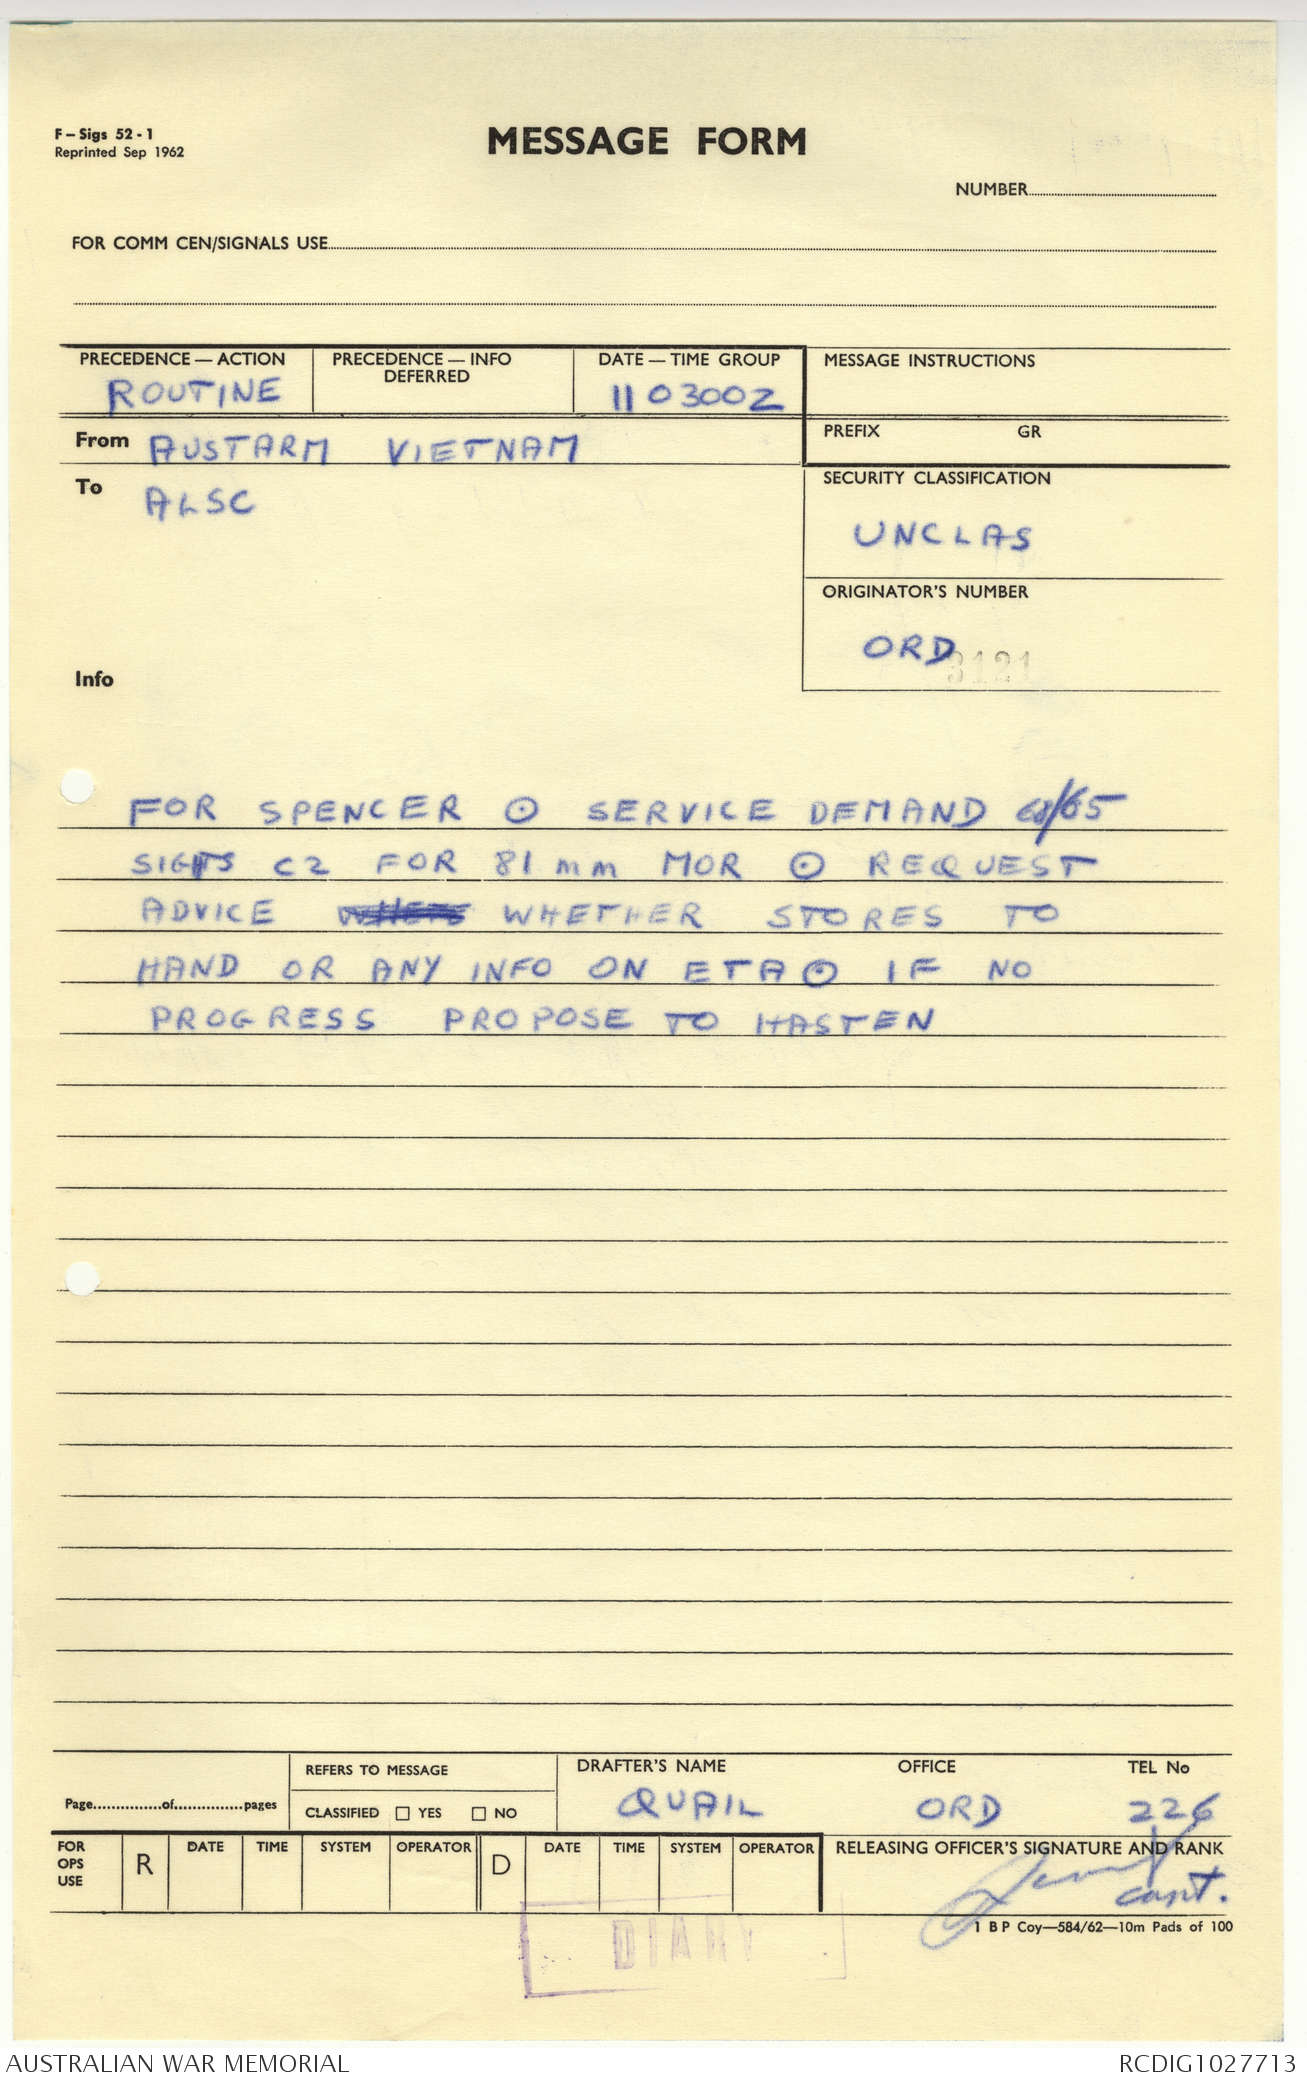 F – Sigs 52 - 1
Reprinted Sep 1962
MESSAGE FORM
NUMBER
FOR COMM CEN/SIGNALS USE
PRECEDENCE — ACTION
ROUTINE
PRECEDENCE — INFO
DEFERRED
DATE — TIME GROUP
110300Z
MESSAGE INSTRUCTIONS
From AUSTARM VIETNAM
PREFIX GR
To ALSC
SECURITY CLASSIFICATION
UNCLAS
ORIGINATOR'S NUMBER
ORD 3121
Info
FOR SPENCER ⊙ SERVICE DEMAND 68/65
SIGHTS C2 FOR 81 mm MOR ⊙ REQUEST
ADVICE WHETHER STORES TO
HAND OR ANY INFO ON ETA ⊙ IF NO
PROGRESS PROPOSE TO HASTEN
Page...............of...............pages
REFERS TO MESSAGE
CLASSIFIED ☐ YES ☐ NO
DRAFTER'S NAME OFFICE TEL No
QUAIL ORD 226
FOR OPS USE
R DATE TIME SYSTEM OPERATOR D DATE TIME SYSTEM OPERATOR
RELEASING OFFICER'S SIGNATURE AND RANK
Capt.
1 B P Coy—584/62—10m Pads of 100
DIARY
AUSTRALIAN WAR MEMORIAL
RCDIG1027713